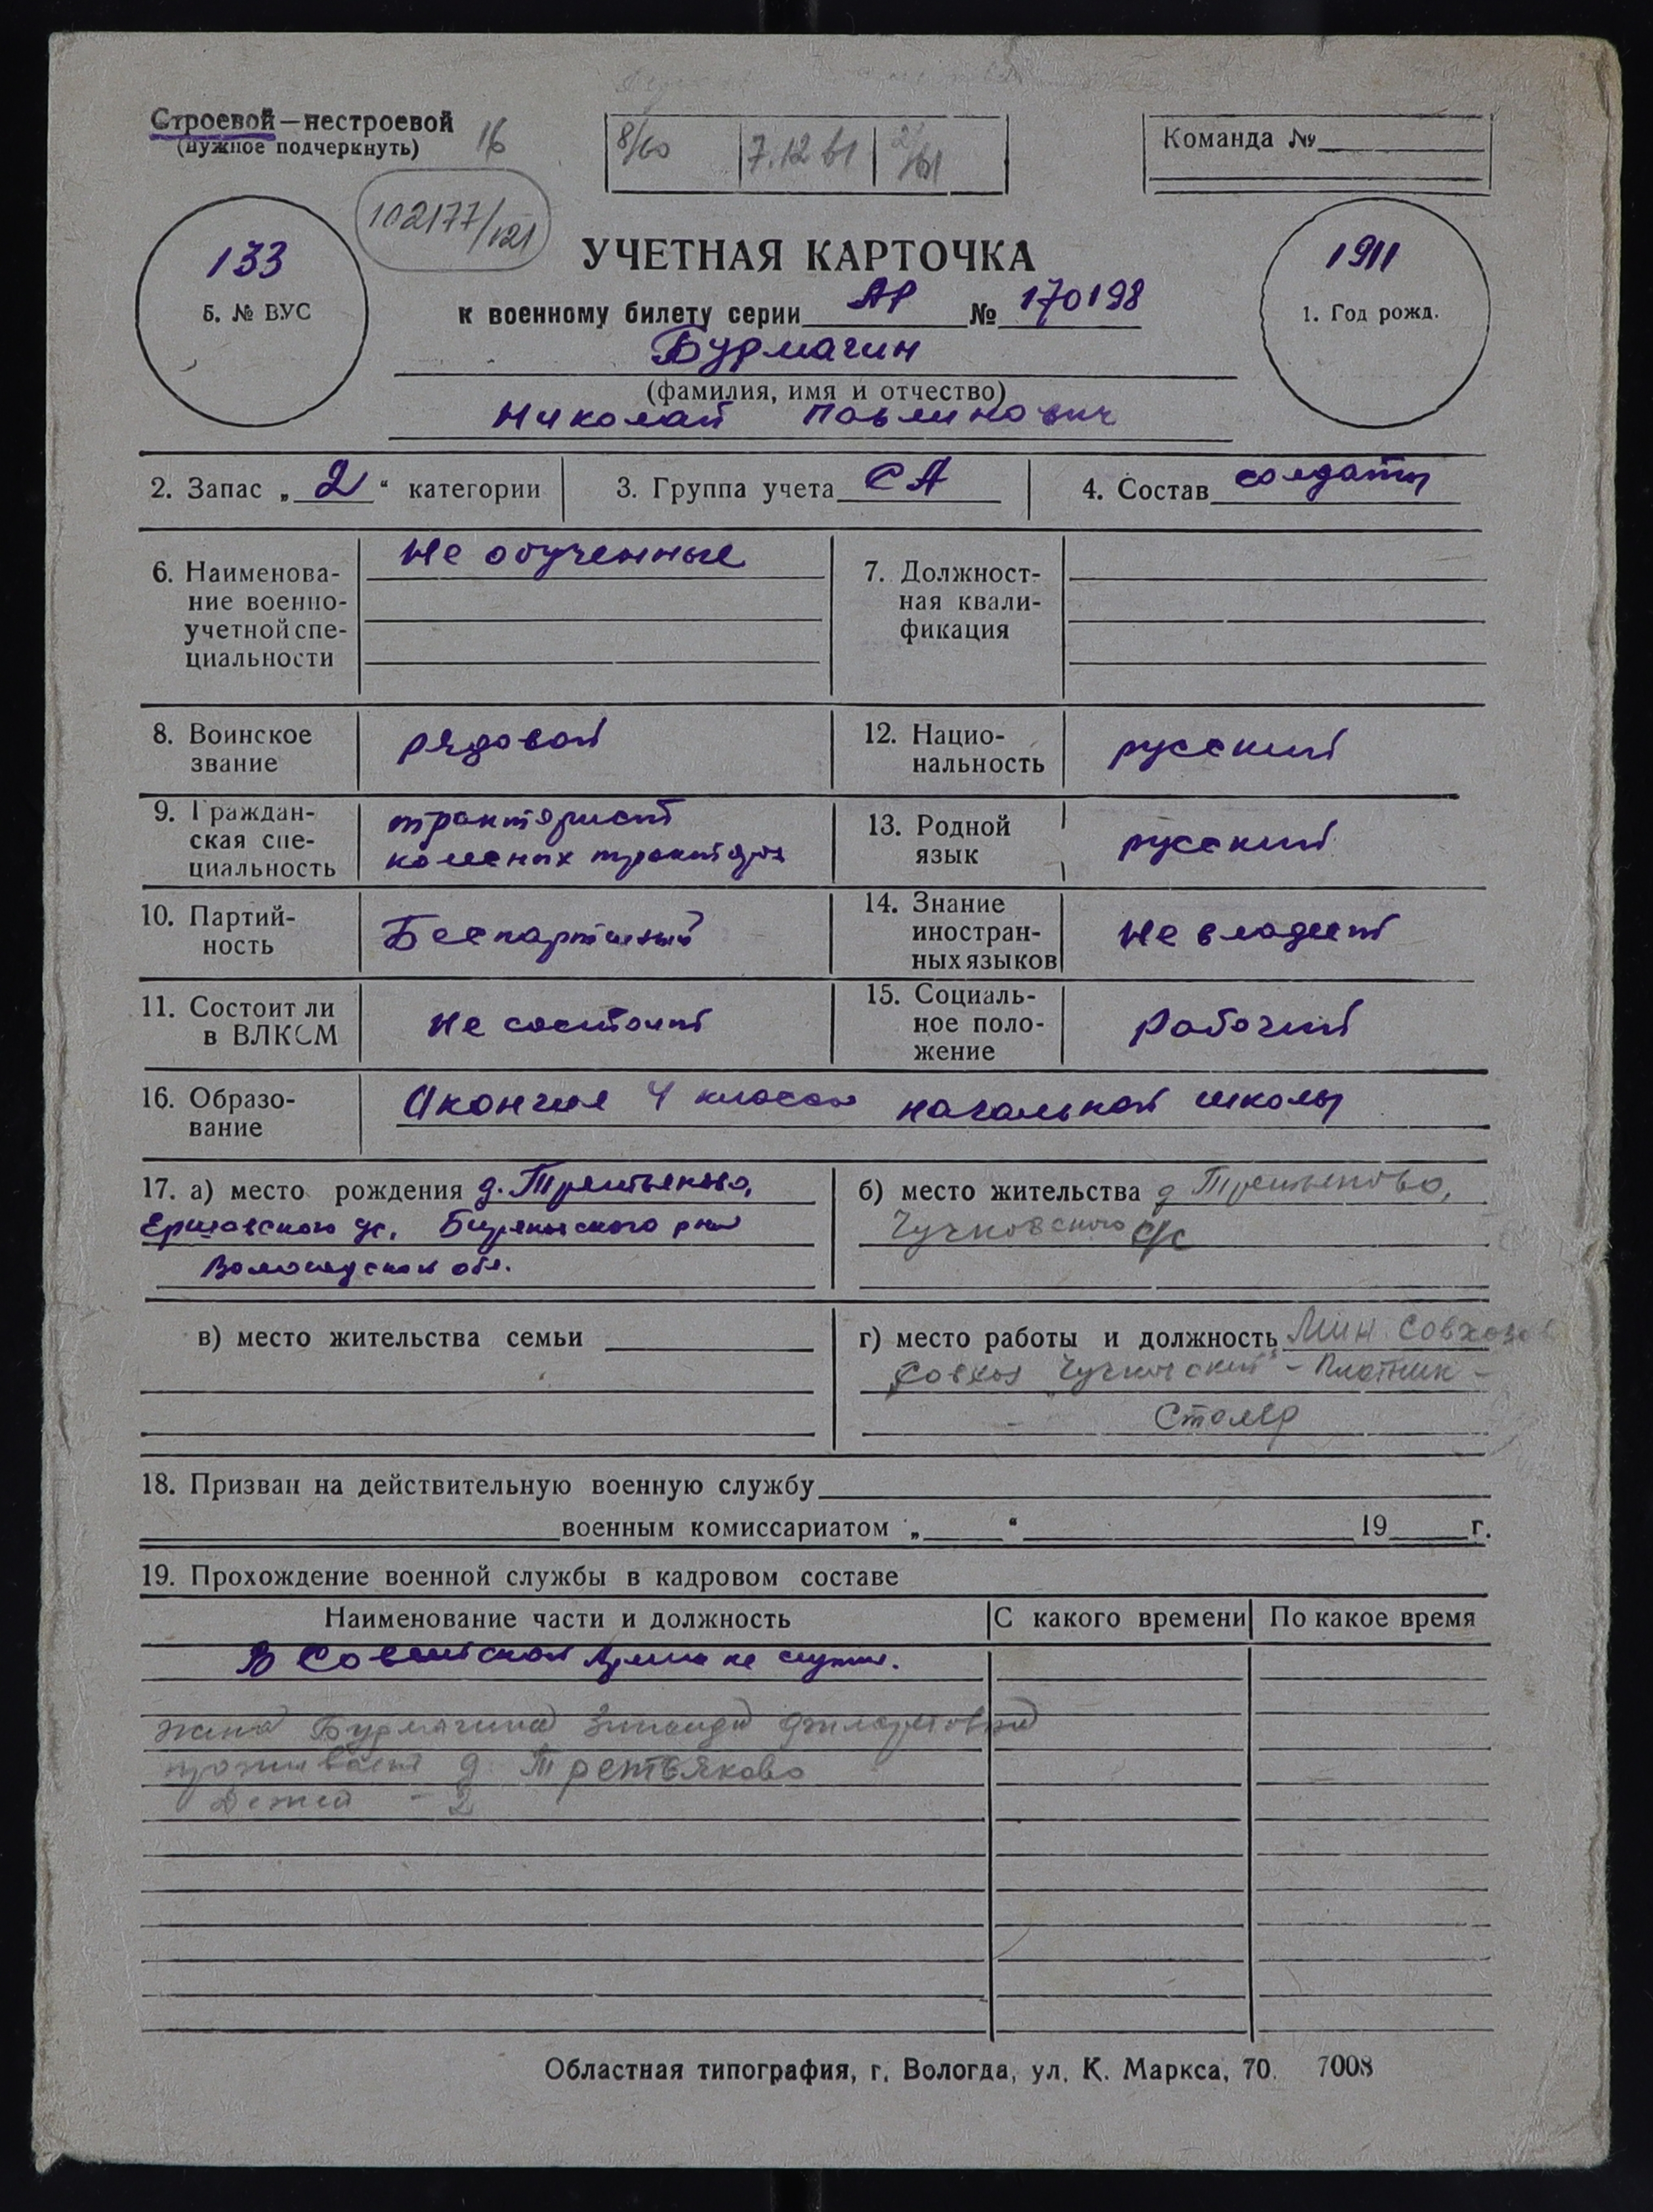 Строевой — нестроевой
(нужное подчеркнуть)
16
8/60 7.12 61
Команда №
102177/121
133
Б. № ВУС
1911
1. Год рожд.
УЧЕТНАЯ КАРТОЧКА
к военному билету серии АР № 170198
Бурмагин
(фамилия, имя и отчество)
Николай Павлинович
2. Запас „2“ категории
3. Группа учета СА
4. Состав солдаты
6. Наименова-
ние военно-
учетной спе-
циальности
Не обученные
7. Должност-
ная квали-
фикация
8. Воинское
звание
рядовой
12. Нацио-
нальность
русский
9. Граждан-
ская спе-
циальность
тракторист
колесных
13. Родной
язык
русский
10. Партий-
ность
Беспартийный
14. Знание
иностран-
ных языков
Не владеет
11. Состоит ли
в ВЛКСМ
Не состоит
15. Социаль-
ное поло-
жение
Рабочий
16. Образо-
вание
Окончил 4 класса начальной школы
17. а) место рождения д. Третьяково,
Ершовского с/с, Бирякиского р-на
Вологодской обл.
б) место жительства д Третьяково,
Чучковского с/с
в) место жительства семьи
г) место работы и должность Мин. Совхозов
Совхоз „Чучковский“ - Плотник -
- Столяр
18. Призван на действительную военную службу
военным комиссариатом „ “ 19 г.
19. Прохождение военной службы в кадровом составе
Наименование части и должность
С какого времени
По какое время
В Советской Армии не служил.
жена Бурмагина Зинаида Филаретовна
проживает д. Третьяково
Детей - 2
Областная типография, г. Вологда, ул. К. Маркса, 70. 7008